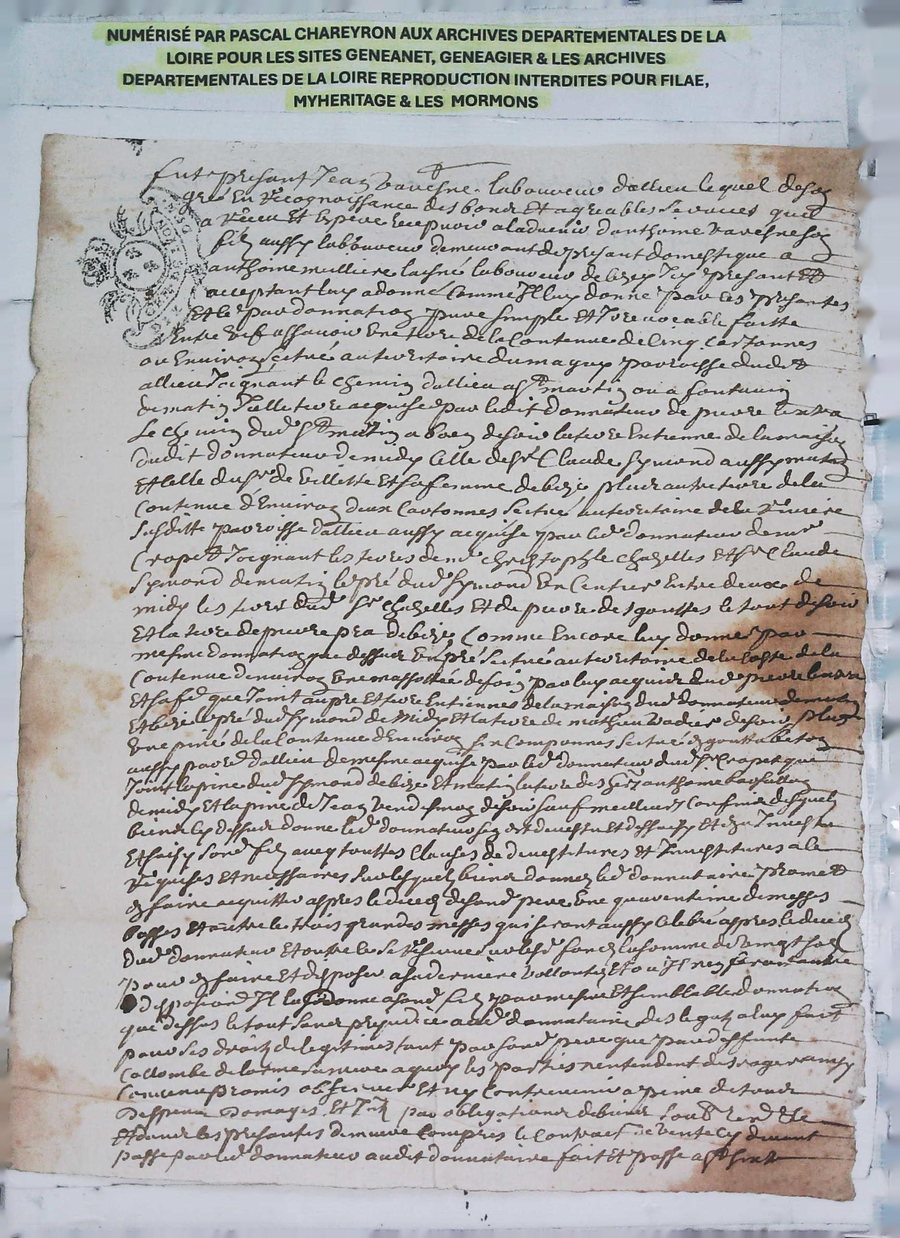 NUMÉRISÉ PAR PASCAL CHAREYRON AUX ARCHIVES DEPARTEMENTALES DE LA
LOIRE POUR LES SITES GENEANET, GENEAGIER & LES ARCHIVES
DEPARTEMENTALES DE LA LOIRE REPRODUCTION INTERDITES POUR FILAE,
MYHERITAGE & LES MORMONS
Fut present Jean Varesne laboureur dallieu lequel de son
gré En Recognoissance des bons Et agreables services quil
a Receu Et Espere recepvoir a ladvenir danthome Varesne son
fils aussy laboureur demeurant de present domestique a
anthome laisné laboureur de Icy present Et
acceptant luy a donné Comme Il luy donne par ces presentes
Et par donnation pure simple Et Irevocable faitte
Entre vifs assavoir Une terre de la Contenue de Cinq Cartonnes
ou Environ scitué au terroitaire du parroisse dudt
allieu Joignant le chemin dallieu a st martin ou a
de matin Icelle terre acquise par ledit donnateur de pierre
Le chemin dud st a de soir la terre Et de la maison
dudit donnateur de midy Celle de sr Claude Symond aussy matin
Et celle du sr de Villette Et sa femme de bize plus autre terre de la
Contenue dEnviron deux Cartonnes scitué au territoire de la
susditte parroisse dallieu aussy acquise par led donnateur de
Joignant les terres de mr christophle chazelles Et sr Claude
Symond de matin le pré dud Symond Entre deux de
midy les terres dud sr chazelles Et de pierre desgouttes le tout de soir
Et la terre de pierre de bize Comme Encore luy donne par
mesme donnation que dessus Un pré scitué au territoire de la Coste de la
Contenue denviron Une de foin par luy acquis dud pierre
Et sa fe que Joint au pré Et terre de la maison dud donnateur de matin
Et bize le pré dud Symond de Midy Et la terre de mathieu de soir plus
Une pinée de la Contenue dEnviron scitué
aussy parr dallieu de mesme acquise par led donnateur dud sr que
Joint la pinée dud Symond de bize Et matin la terre des anthome
de midy Et la pinée de Jean de soir sauf meilleurs Confins desquels
biens Cy dessus donné led donnateur sen est devestu Et dessaisy Et En a Investu
Et saisy sond fils avec touttes Clauses de devestitures Et Investitures a ce
Requises Et necessaires sur lesquels biens donnés led donnataire promet
faire acquitter appres le deces de sond pere Une quarentaine de messes
basses Et outre ce trois grandes messes qui seront aussy celebré appres le deces
dud donnateur Et outre ce se Reserve la somme de vingt
pour En faire Et disposer a sa derniere vollonté Et ou Il nen feroit autre
disposition Il la donne a sond fils par mesme Et semblable donnation
que dessus le tout sans prejudice aud donnataire des legatz a luy fait
pour ses droitz de legitimes tant par sond pere que par deffunte
Collombe sa mere a quoy les parties nentendent desroger ainsy
Convenu promis observer Et ny Contrevenir a peine de tous
despens domages Et Int par obligations de biens soubz
Et dans les presentes demeure Compris le Contract de vente Cy devant
passé par led donnateur audit donnataire fait Et passé a